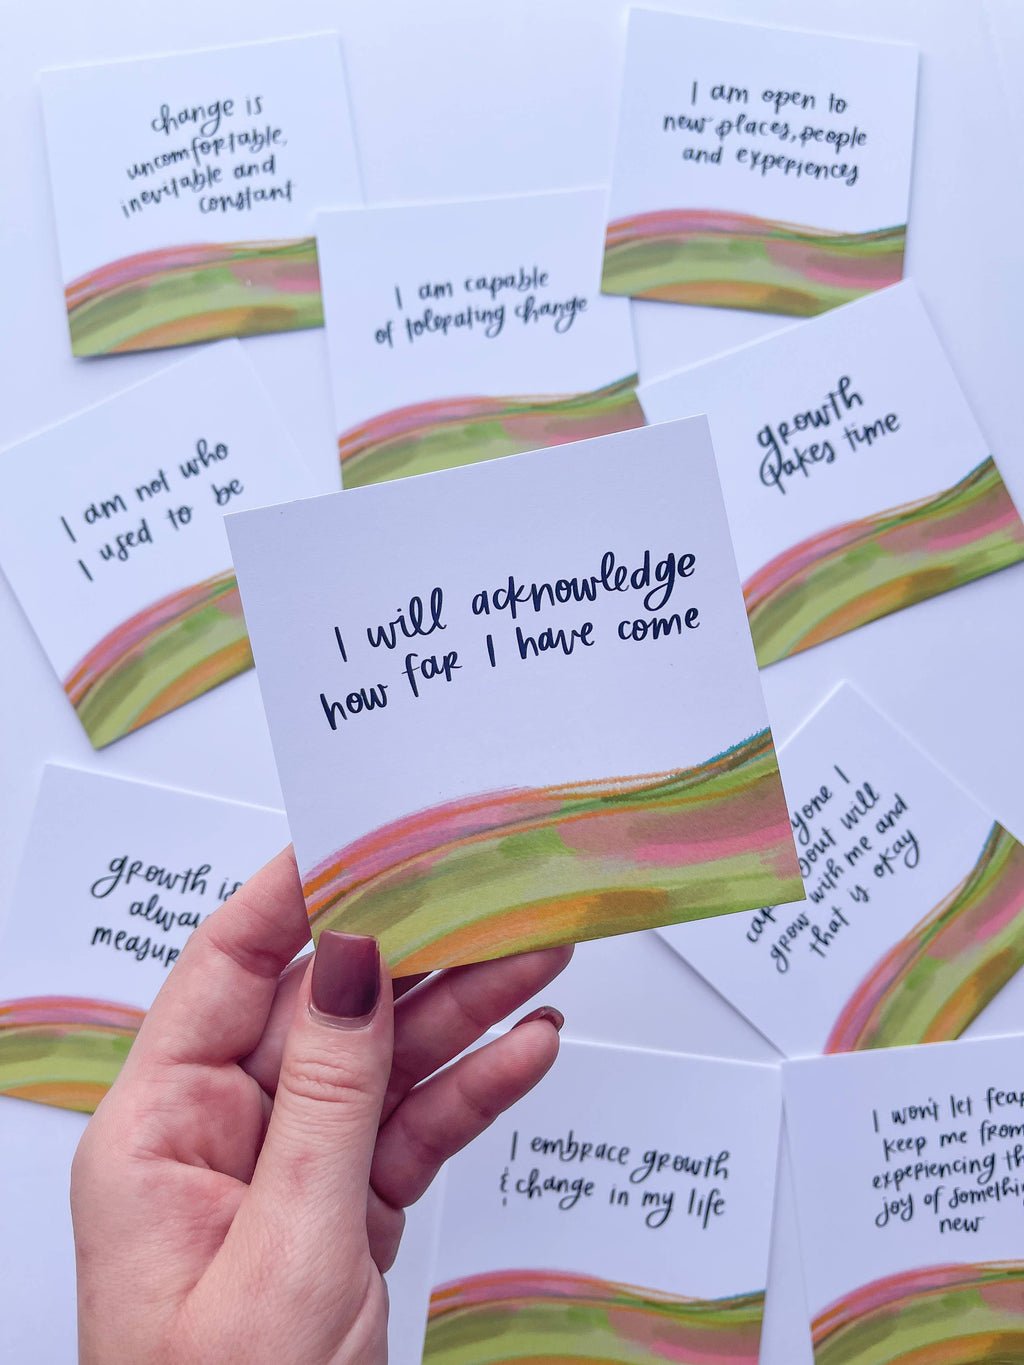 change is
uncomfortable,
inevitable and
constant
I am open to
new places, people
and experiences
I am capable
of tolerating change
I am not who
I used to be
growth
takes time
I will acknowledge
how far I have come
growth is
always
I
will
grow with me and
that is okay
I embrace growth
& change in my life
I won't let fear
keep me from
experiencing the
joy of something
new